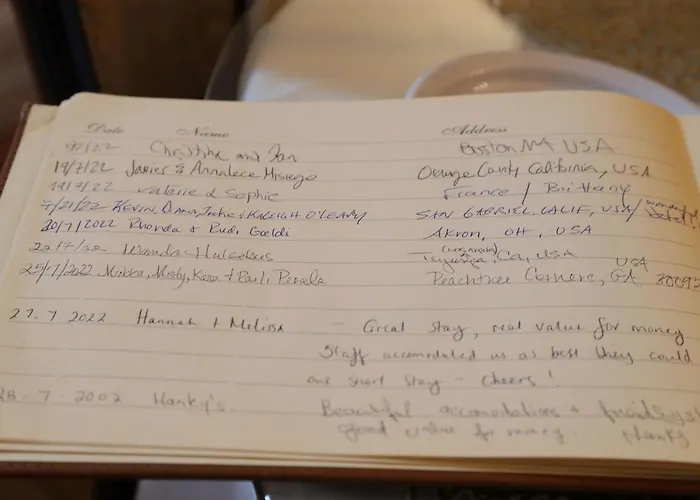 Date Name Address
/7/22 Christina and Ian Boston MA USA
19/7/22 Javier & Annalece Orange County California, USA
19/7/22 Valerie & Sophie France / Brittany
7/21/22 KEVIN, Dawn, Jackie & KALEIGH O'LEARY SAN GABRIEL, CALIF, USA/ wonderful
20/7/2022 Rhonda & Rudi Gaeldi Akron, OH, USA
22/7/22 Ca, USA
25/7/2022 Misty, Kasa & Peachtree Corners, GA USA 30092
27.7 2022 Hannah + Melissa - Great stay, real value for money
Staff accomodated us as best they could
our short stay - cheers!
28-7-2002 Hanky's. Beautiful accomodations +
good value for money. thanks